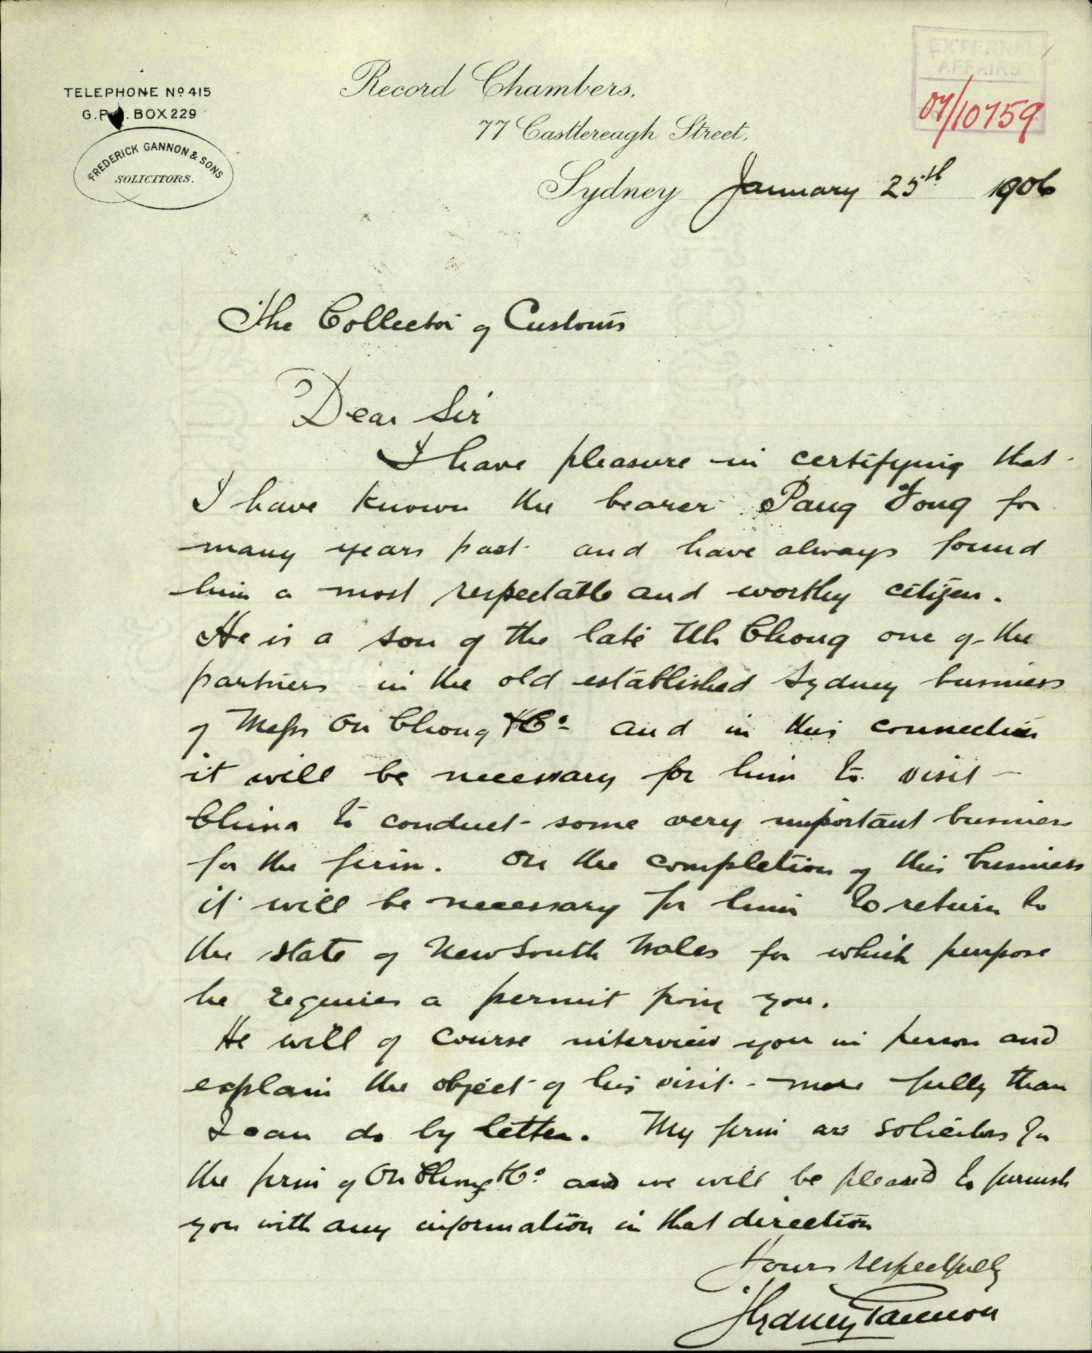 TELEPHONE Nº 415
G.P.O. BOX 229
FREDERICK GANNON & SONS
SOLICITORS.
Record Chambers,
77 Castlereagh Street,
EXTERNAL
AFFAIRS
07/10759
Sydney January 25th 1906
The Collector of Customs
Dear Sir
I have pleasure in certifying that
I have known the bearer Pang Fong for
many years past and have always found
him a most respectable and worthy citizen.
He is a son of the late Uh Chong one of the
partners in the old established Sydney business
of Messrs On Chong & Co. and in this connection
it will be necessary for him to visit
China to conduct some very important business
for the firm. On the completion of this business
it will be necessary for him to return to
the state of New South Wales for which purpose
he requires a permit from you.
He will of course interview you in person and
explain the object of his visit more fully than
I can do by letter. My firm are solicitors for
the firm of On Chong & Co. and we will be pleased to furnish
you with any information in that direction
Yours respectfully
J Sydney Gannon